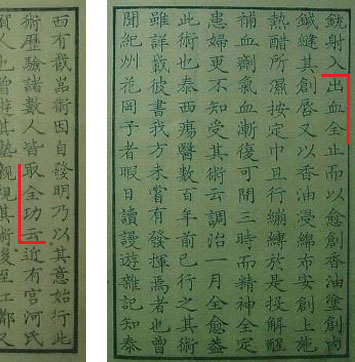 銃射入出血全止而以愈創香油塗創內
鍼縫其創唇又以香油浸綿布安創上施
熱醋所濕按定巾且行繃縛於是投解醒
補血劑氣血漸復可間三時而精神全定
患婦更不知受其術云調治一月全愈蓋
此術也泰西瘍醫數百年前已行之其術
雖詳載彼書我方未嘗有發揮焉者也曾
聞紀州花岡子者暇日讀漫遊雜記知泰
西有截嵓術因自發明乃以其意始行此
術歷驗諸數人皆取全功云近有宮河氏
賀人也曾游其塾親其術後至江都又